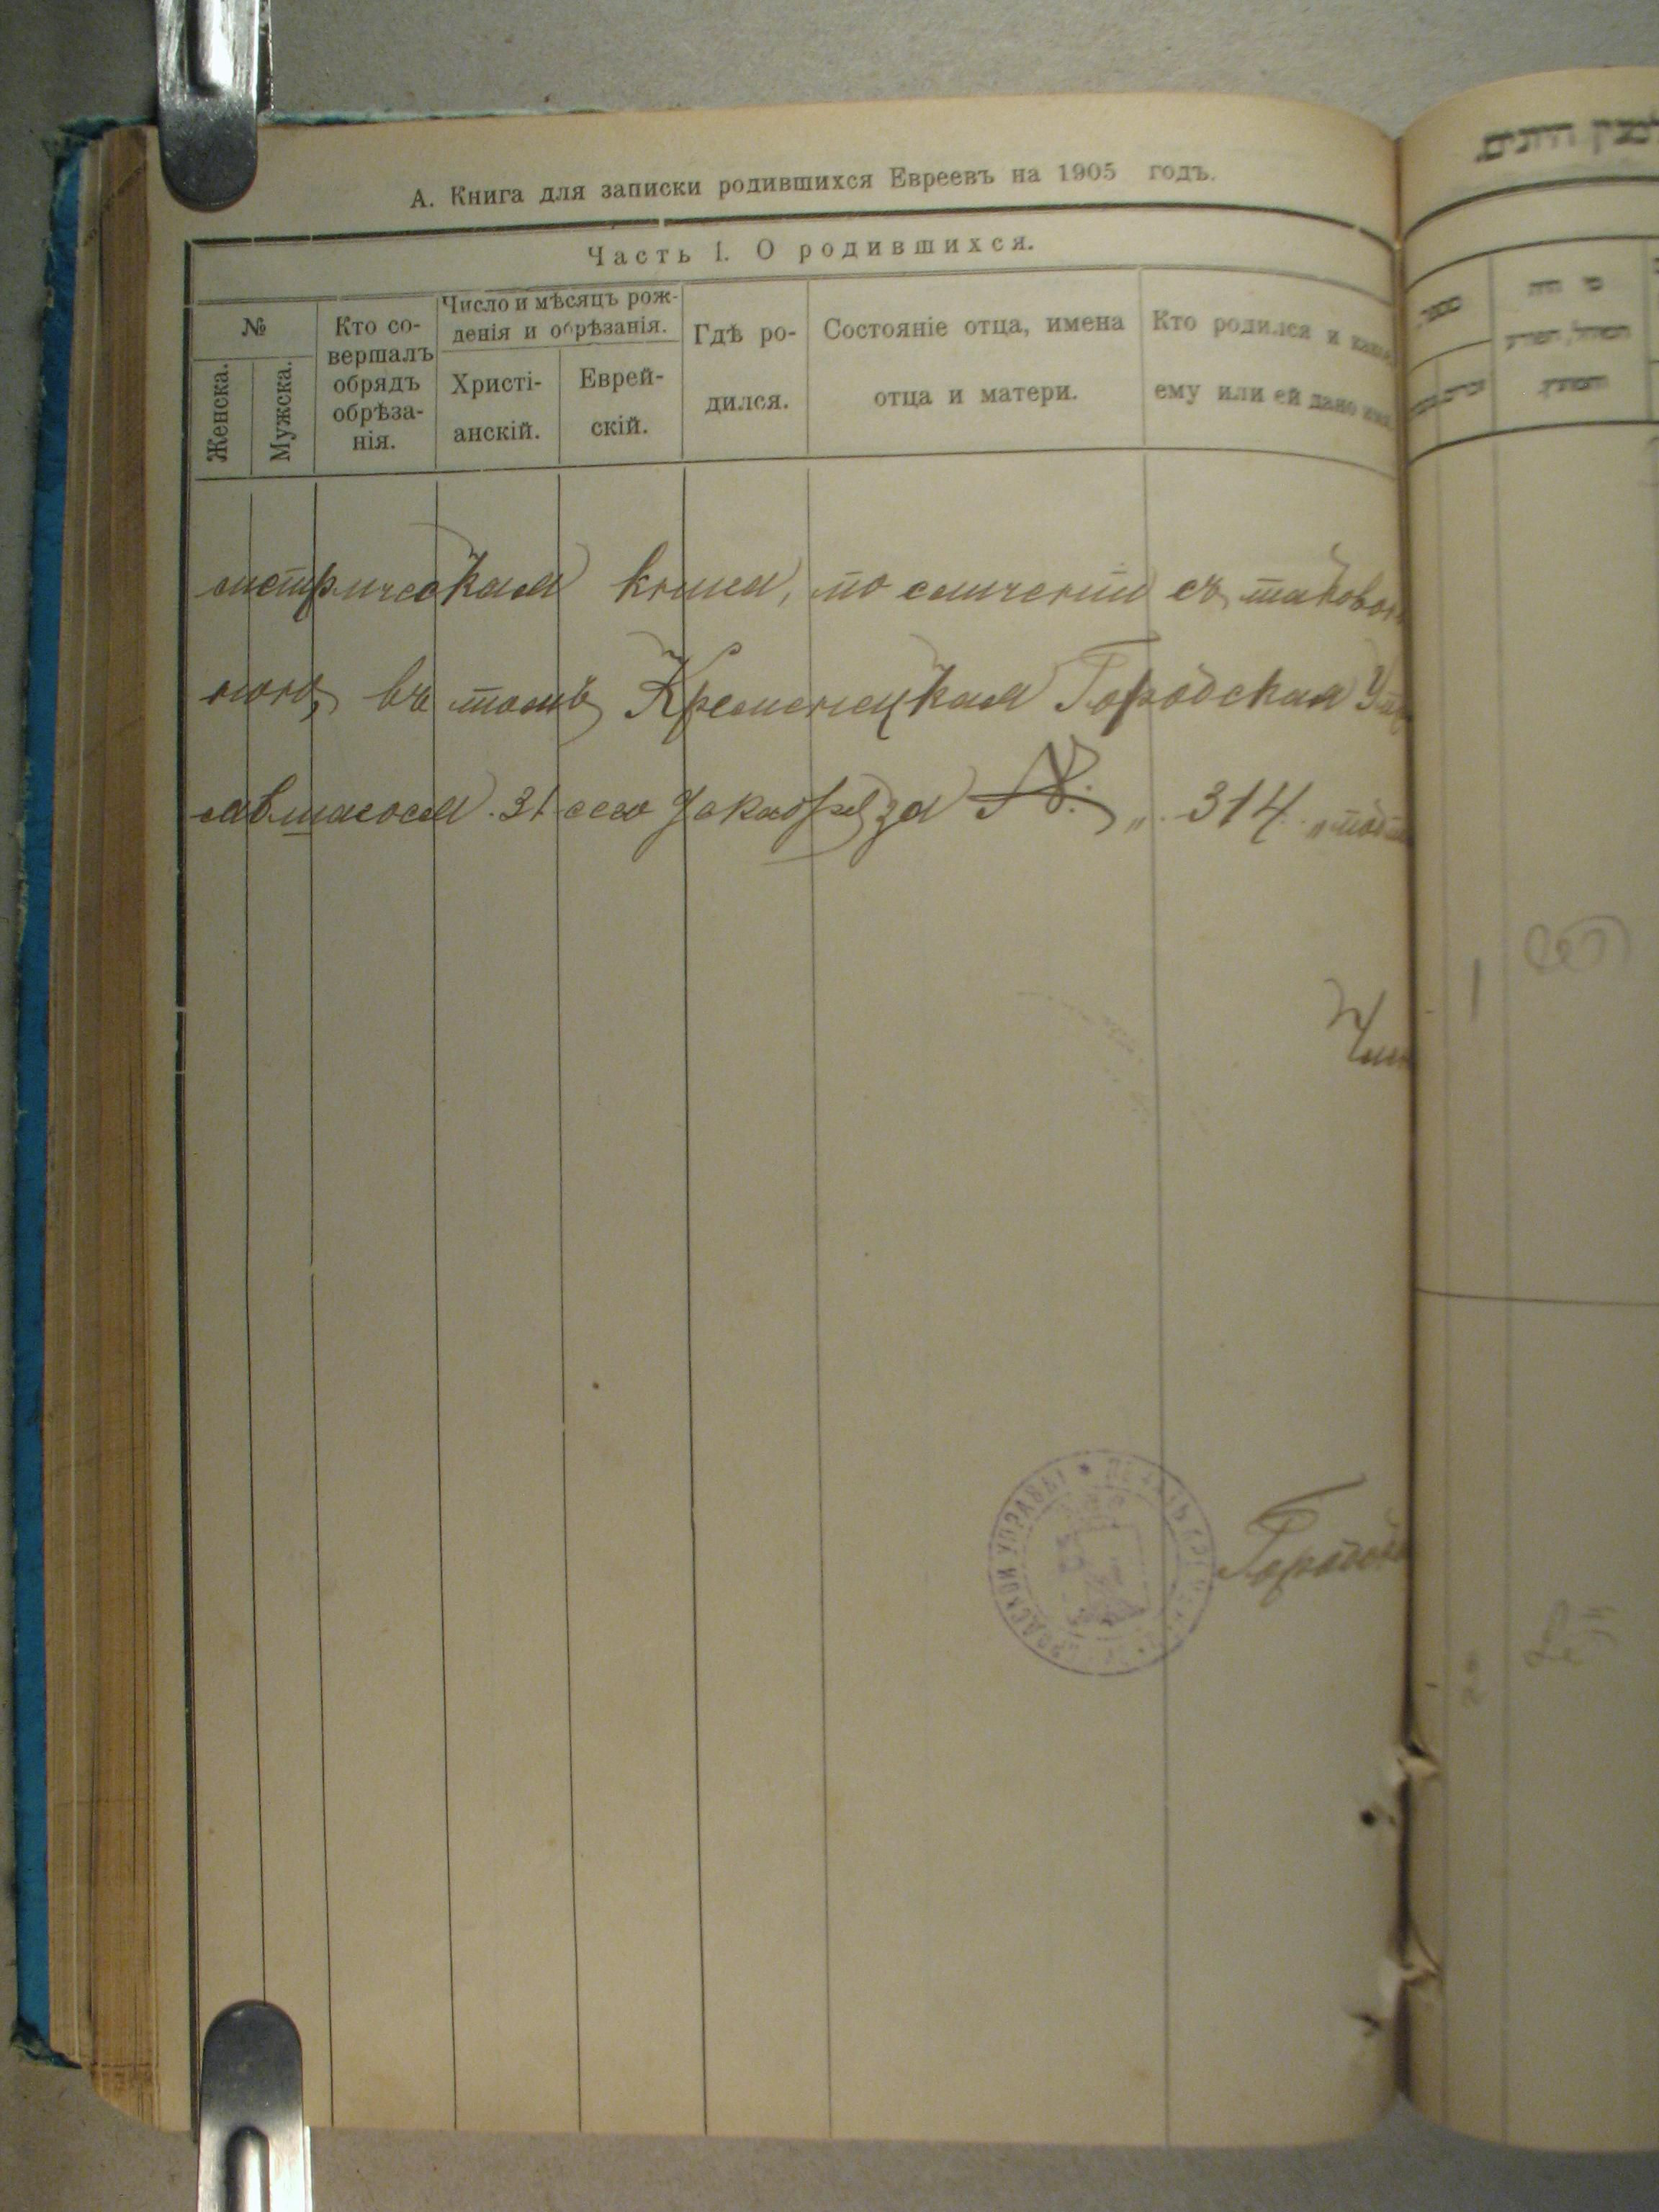 А. Книга для записки родившихся Евреевъ на 1905 годъ.
Часть I. О родившихся.
№
Женска.
Мужска.
Кто со-
вершалъ
обрядъ
обрѣза-
нія.
Число и мѣсяцъ рож-
денія и обрѣзанія.
Христі-
анскій.
Еврей-
скій.
Гдѣ ро-
дился.
Состояніе отца, имена
отца и матери.
Кто родился и какое
ему или ей дано имя.
метрическая книга, по сличеніи съ таковою
въ томъ Кременецкая Городская
31 сего Декабря за № „ 314 „
Городск
ГОРОДСКОЙ УПРАВЫ * ПЕЧАТЬ